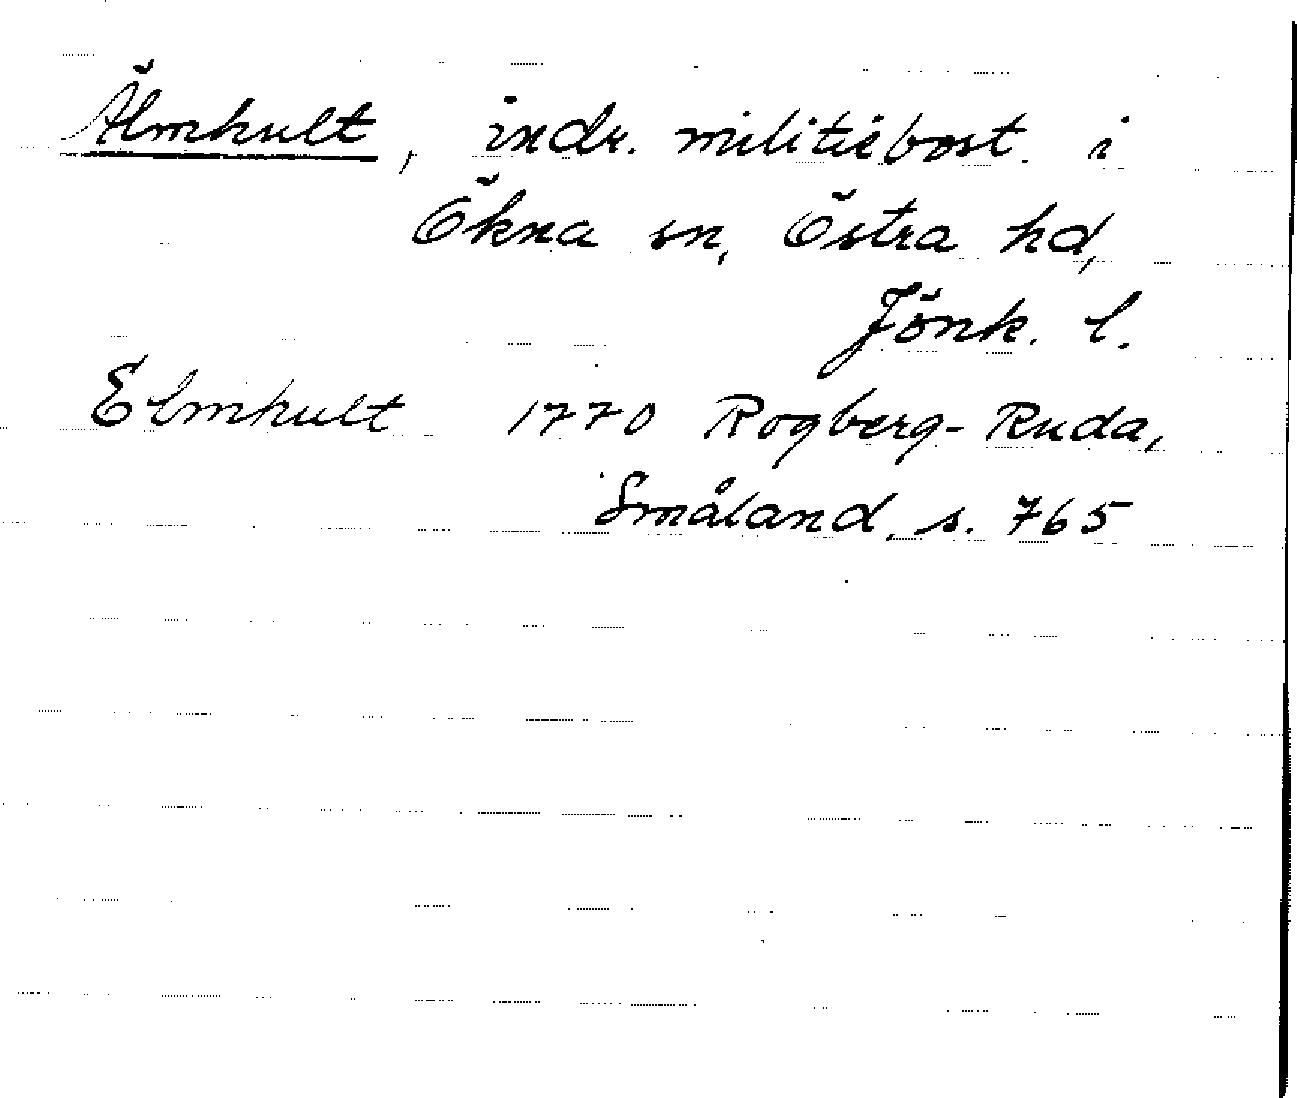 Älmhult, indr. militiebost. i
Ökna sn, Östra hd,
Jönk. l.
Elmhult 1770 Rogberg-Ruda,
Småland, s. 765